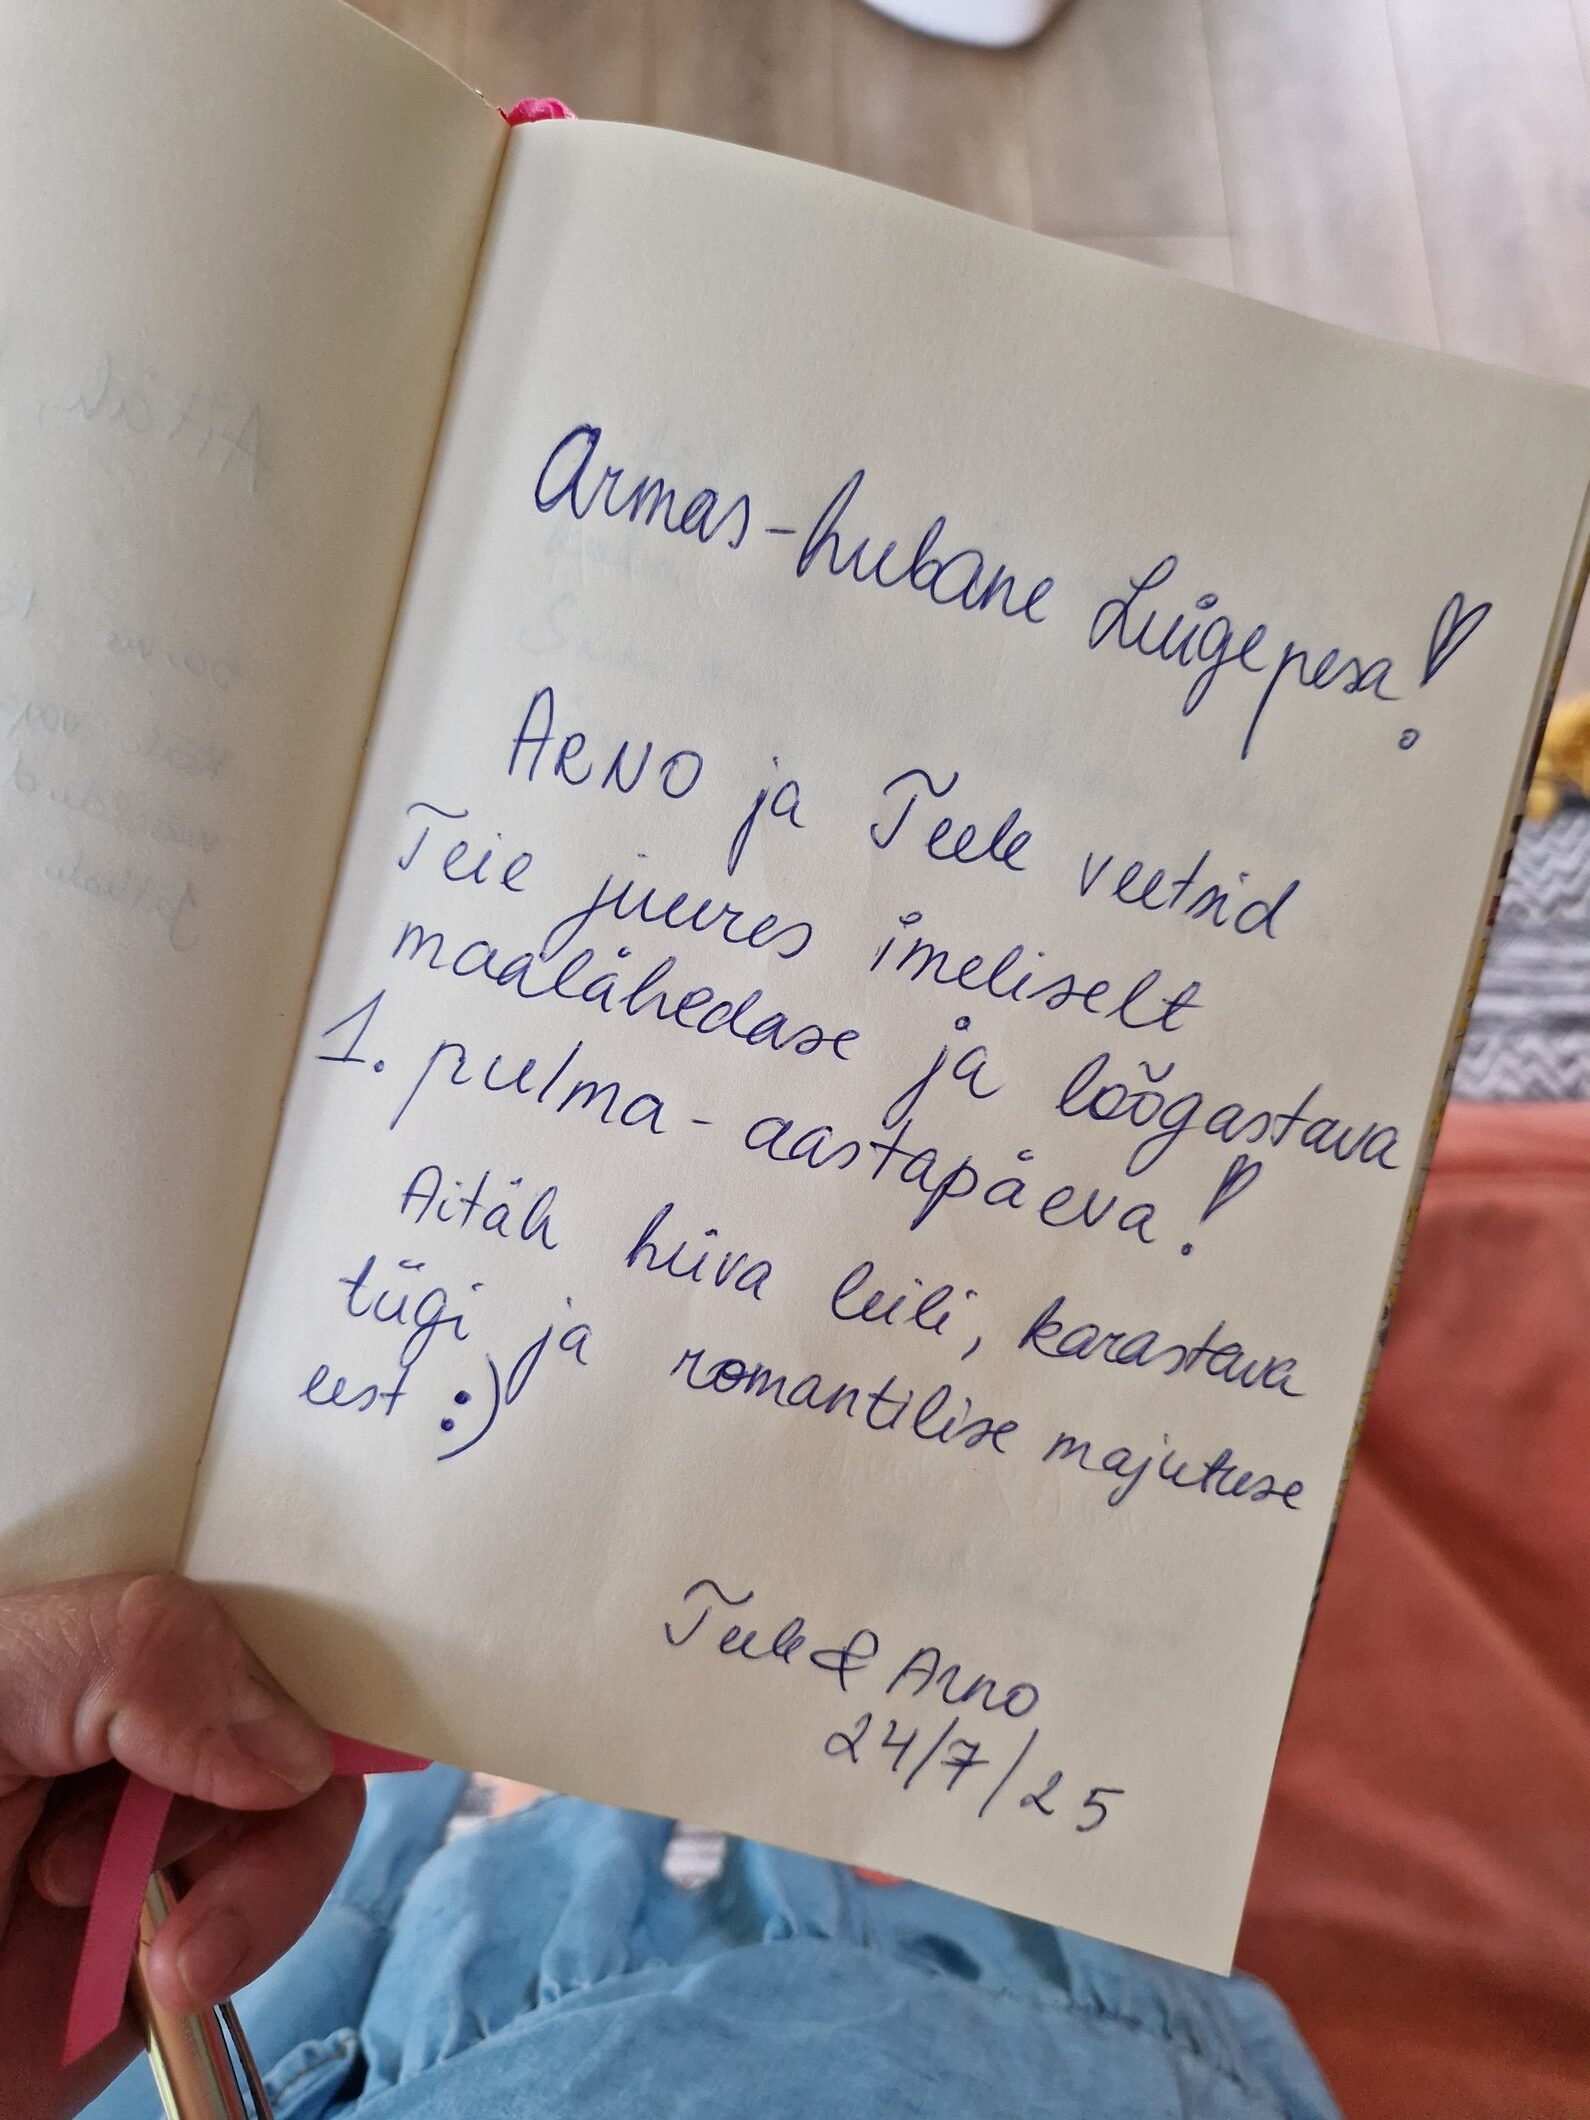 Armas-hubane Luigepesa!
ARNO ja Teele veetsid
Teie juures imeliselt
maalähedase ja lõõgastava
1. pulma-aastapäeva!
Aitäh hüva leili, karastava
tiigi ja romantilise majutuse
eest :)
Teele & Arno
24/7/25
Aitäh,